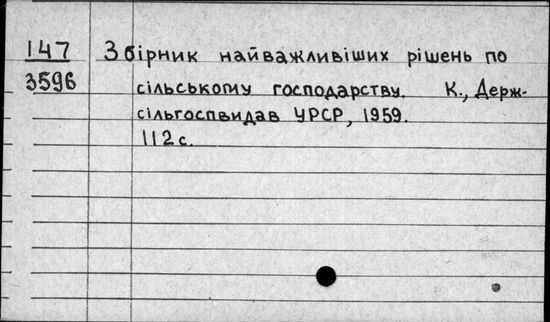 147 Збірник найважливіших рішень по
3596 сільському господарству. К., Держ-
сільгоспвидав УРСР, 1959.
112 с.